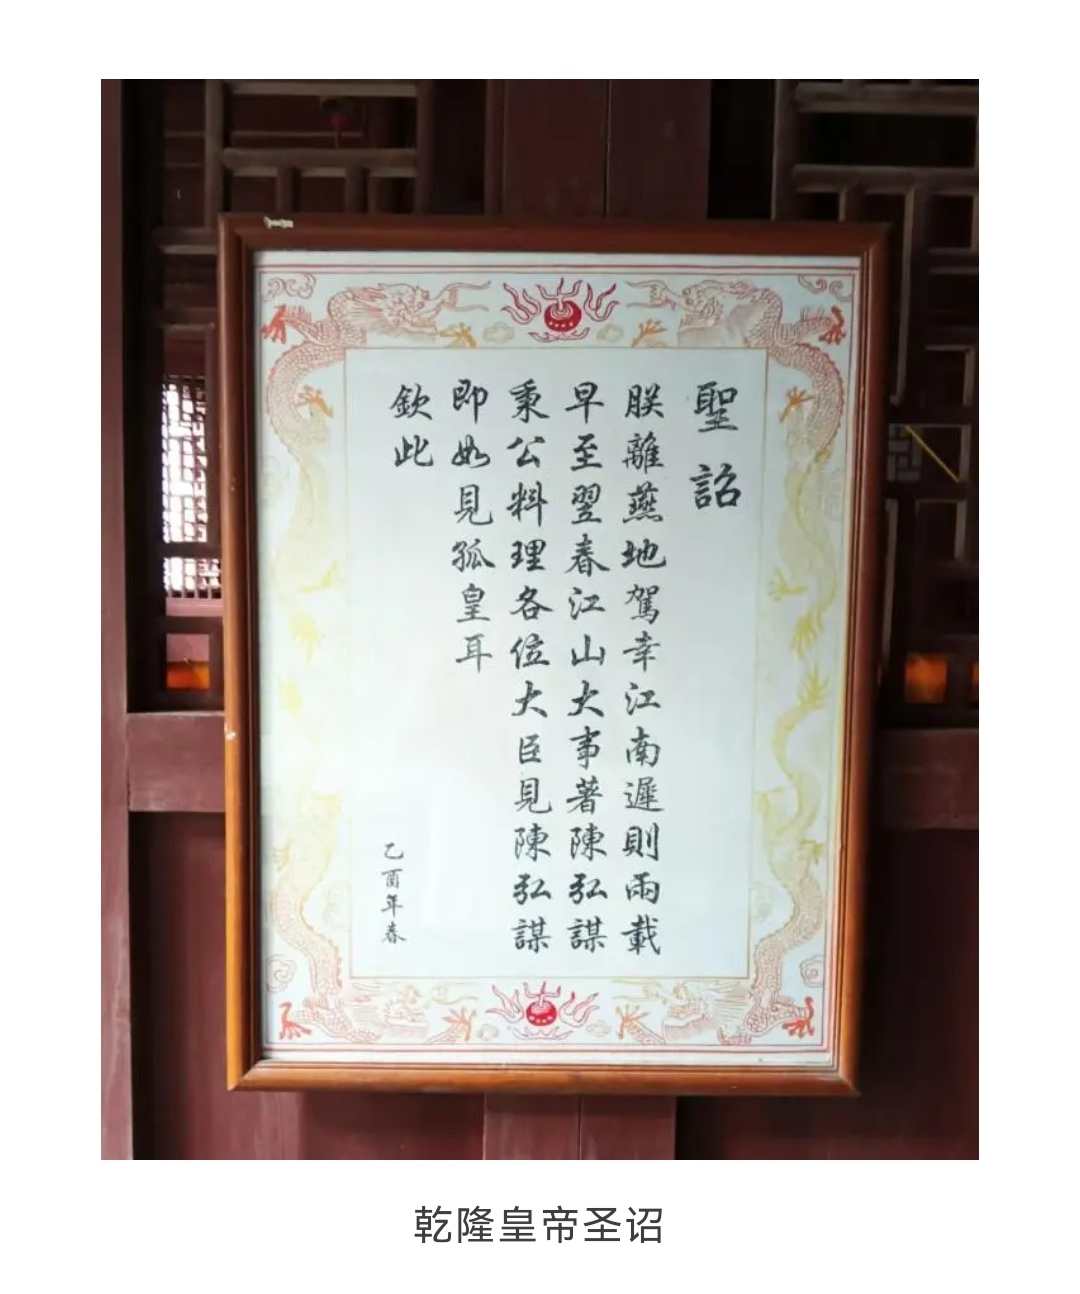 聖詔
朕離燕地駕幸江南遲則兩載
早至翌春江山大事著陳弘謀
秉公料理各位大臣見陳弘謀
即如見孤皇耳
欽此
乙酉年春
乾隆皇帝圣诏